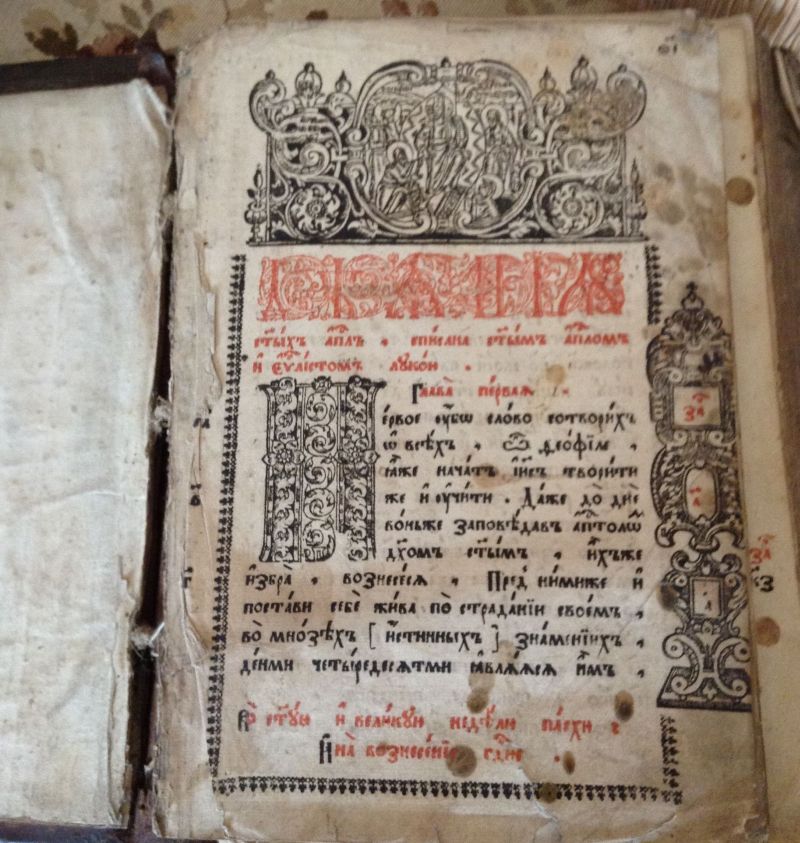 ДѢАНІА
ст҃ы́хъ а҆п҃лъ . спи́сана ст҃ы́мъ а҆п҃ломъ
и҆ є҆ѵ҃лі́стомъ луко́ю .
Глава̀ пе́рвая .
Пе́рвое ᲂу҆́бѡ сло́во сотвори́хъ
ѡ҆ всѣ́хъ , ѽ ѳео́филе ,
ꙗ҆̀же нача́тъ і҆и҃съ твори́ти
же и҆ ᲂу҆чи́ти . Да́же до̀ дн҃е
во́ньже заповѣ́давъ а҆п҃толѡⷨ
дх҃омъ ст҃ы́мъ , и҆́хъже
и҆збра̀ , вознесе́ся , Пред ни́миже и҆
поста́ви себѐ жи́ва по̀ страда́нїи свое́мъ ,
во̀ мно́зѣхъ [ и҆́стинныхъ ] зна́менїихъ ,
де́нми четы́редесятми ꙗ҆вля́яся и҆̀мъ ,
Во̀ ст҃у́ю и҆ вели́кую недѣ́лю па́схи :
И҆ на̀ вознесе́нїе гдⷭ҇не .
за҃
а҃
за҃